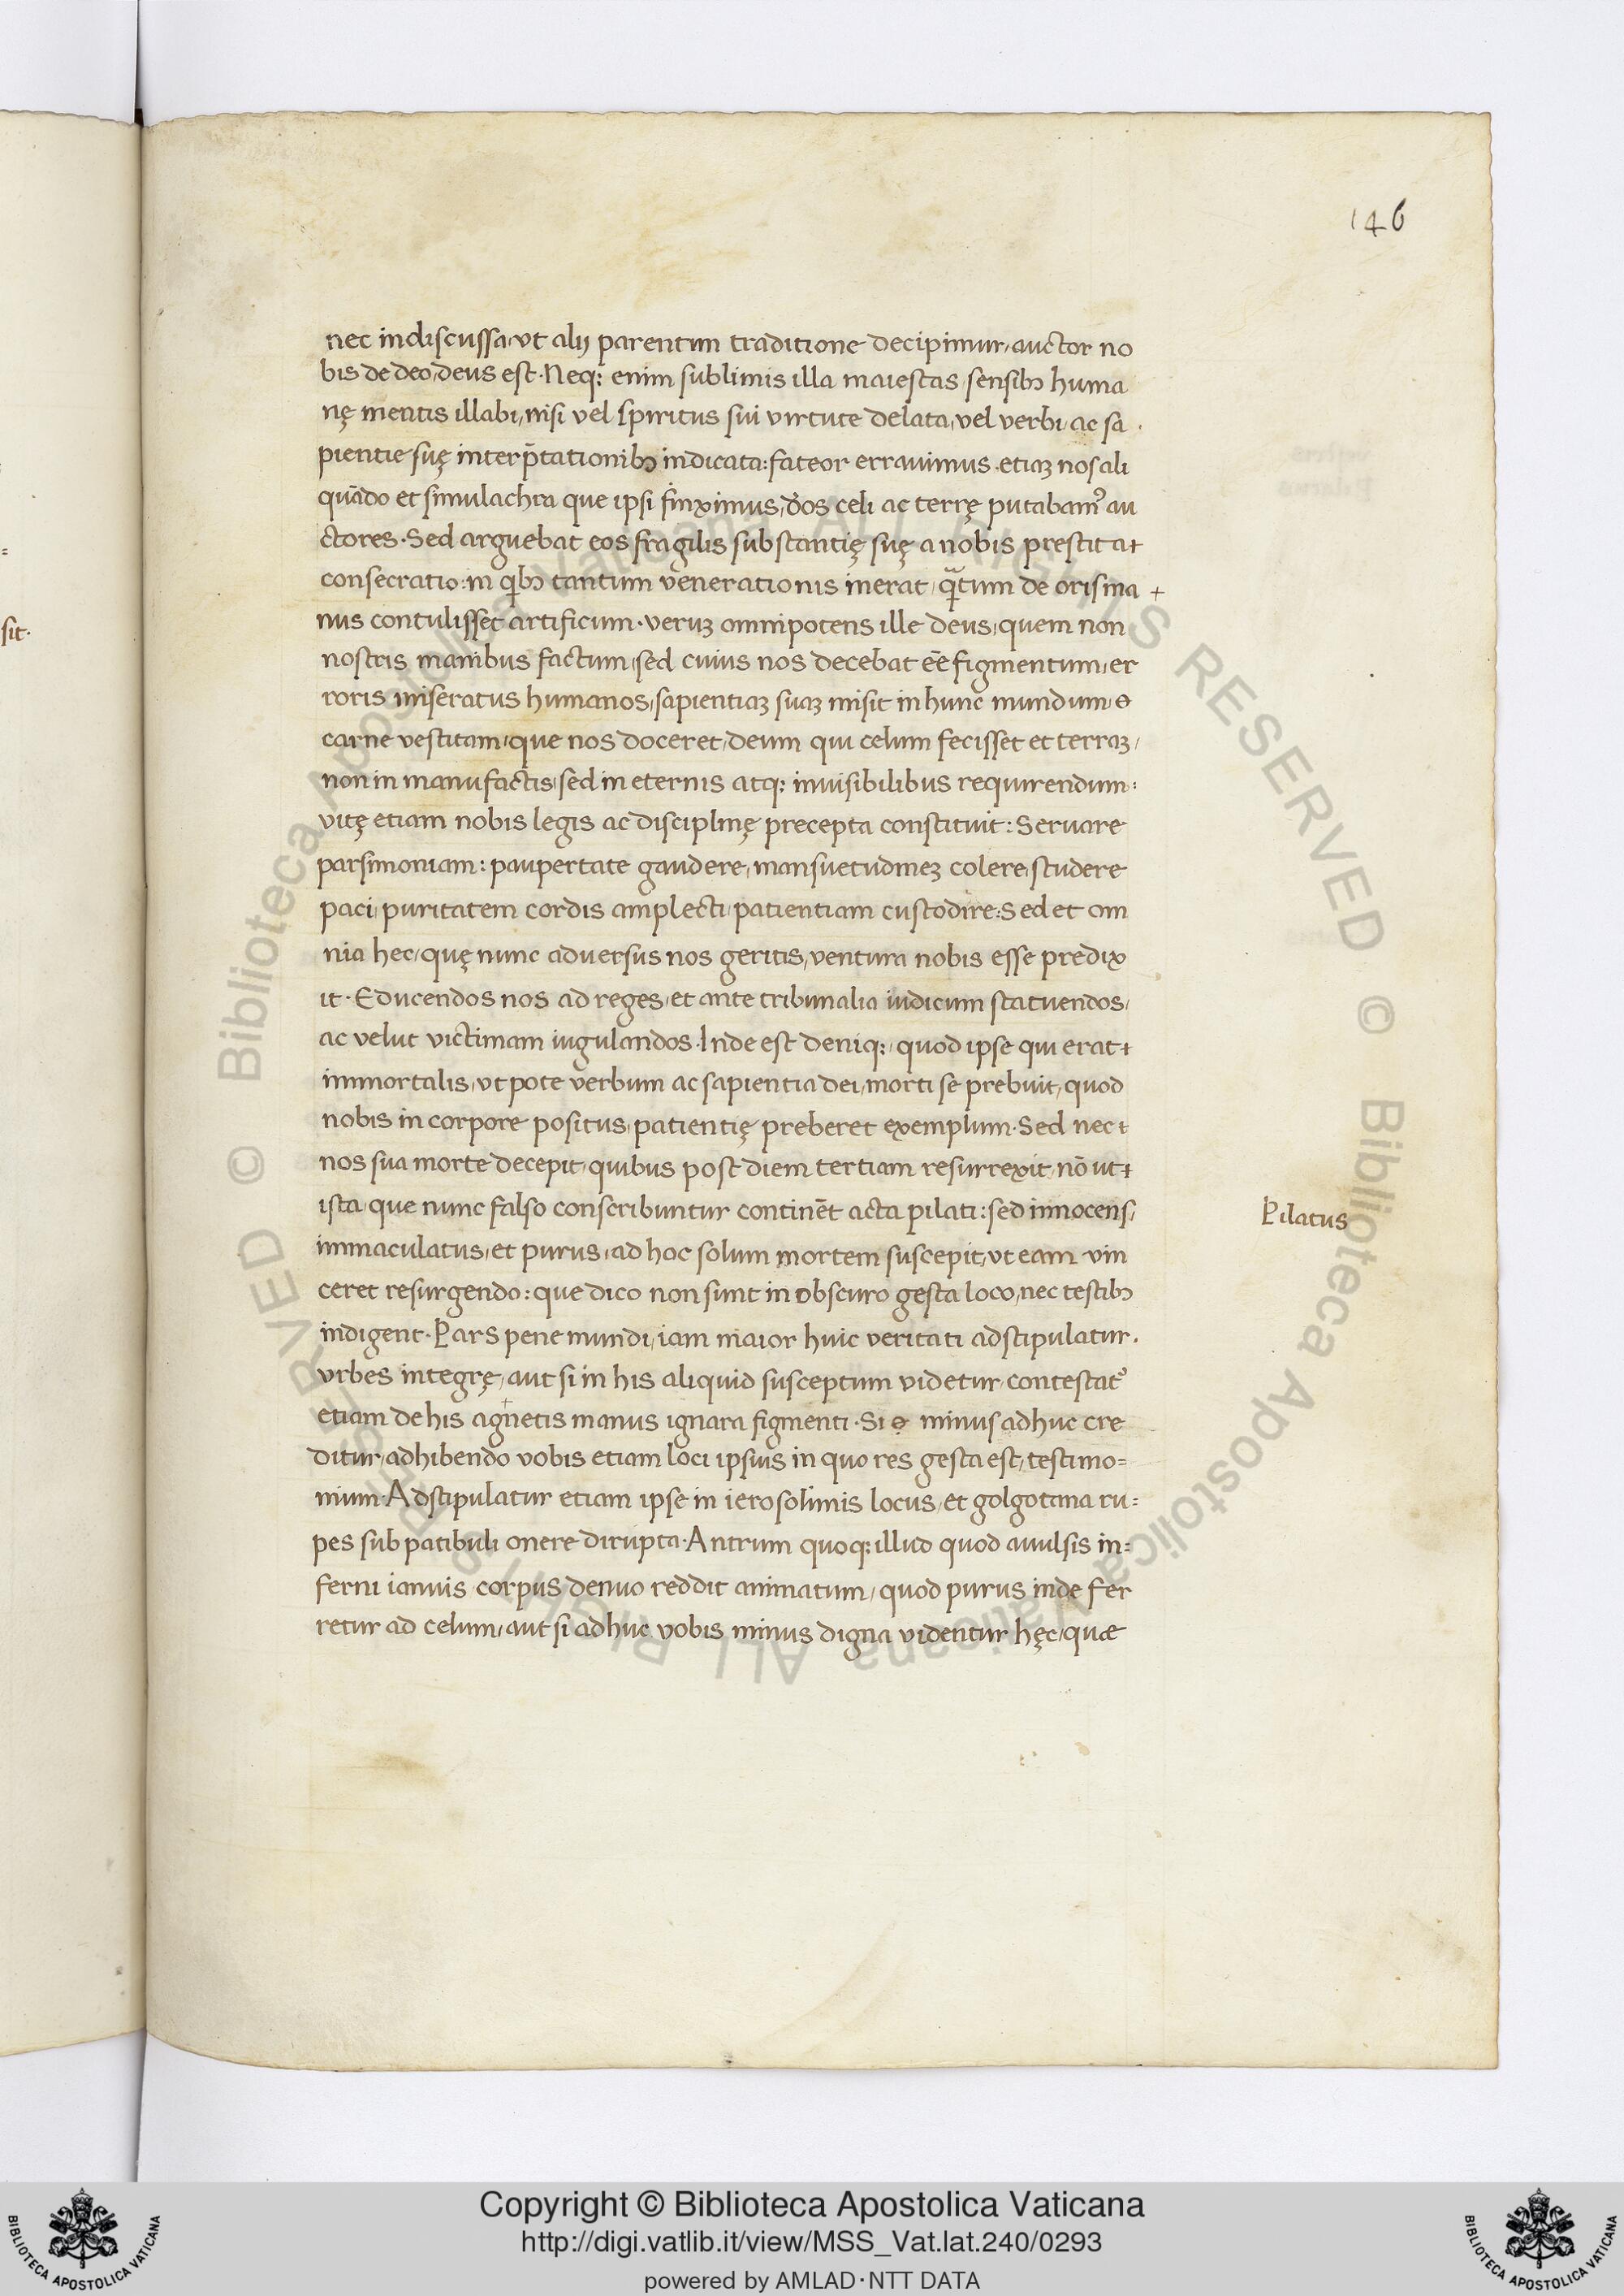 146
nec indiscussa, vt alij parentum traditione decipimur, auctor no
bis de deo, deus est. Neq; enim sublimis illa maiestas sensibꝫ huma
nę mentis illabi, nisi vel spiritus sui virtute delata, vel verbi, ac sa
pientie suę interp̄tationibꝫ indicata: fateor errauimus. etiaꝫ nos ali
quādo et simulachra que ipsi finximus, d̄os celi ac terrę putabamꝰ au
ctores. Sed arguebat eos fragilis substantię suę a nobis prestita
consecratio: in qͥbꝫ tantum venerationis inerat, qᵃ̄tum de oris ma +
nus contulisset artificum. veruꝫ omnipotens ille deus, quem non
nostris manibus factum, sed cuius nos decebat eē figmentum, er
roris miseratus humanos, sapientiaꝫ suaꝫ misit in hunc mundum, &
carne vestitam, que nos doceret, deum qui celum fecisset et terraꝫ,
non in manufactis, sed in eternis atq; inuisibilibus requirendum:
vitę etiam nobis legis ac disciplinę precepta constituit: Seruare
parsimoniam: paupertate gaudere, mansuetudineꝫ colere, studere
paci, puritatem cordis amplecti, patientiam custodire: Sed et om
nia hec, quę nunc aduersus nos geritis, ventura nobis esse predix
it. Educendos nos ad reges, et ante tribunalia iudicum statuendos,
ac velut victimam iugulandos. Inde est deniq;, quod ipse qui erat
immortalis, vt pote verbum ac sapientia dei, morti se prebuit, quod
nobis in corpore positus, patientię preberet exemplum. Sed nec
nos sua morte decepit, quibus post diem tertiam resurrexit, nō ut
ista, que nunc falso conscribuntur continēt acta pilati: sed innocens,
Pilatus
immaculatus, et purus, ad hoc solum mortem suscepit, vt eam vin
ceret resurgendo: que dico non sunt in obscuro gesta loco, nec testibꝫ
indigent. Pars pene mundi, iam maior huic veritati adstipulatur.
vrbes integrę, aut si in his aliquid susceptum videtur, contestatꝰ
etiam de his agnetis manus ignara figmenti. Si minus adhuc cre
ditur, adhibendo vobis etiam loci ipsius in quo res gesta est, testimo=
nium. Adstipulatur etiam ipse in ierosolimis locus, et golgotana ru=
pes sub patibuli onere dirupta. Antrum quoq; illud quod auulsis in=
ferni ianuis corpus denuo reddit animatum, quod purus inde fer
retur ad celum, aut si adhuc vobis minus digna videntur hęc, quæ
sit.
Copyright © Biblioteca Apostolica Vaticana
http://digi.vatlib.it/view/MSS_Vat.lat.240/0293
powered by AMLAD·NTT DATA
BIBLIOTECA APOSTOLICA VATICANA
BIBLIOTECA APOSTOLICA VATICANA
© Biblioteca Apostolica Vaticana ALL RIGHTS RESERVED © Biblioteca Apostolica Vaticana ALL RIGHTS RESERVED